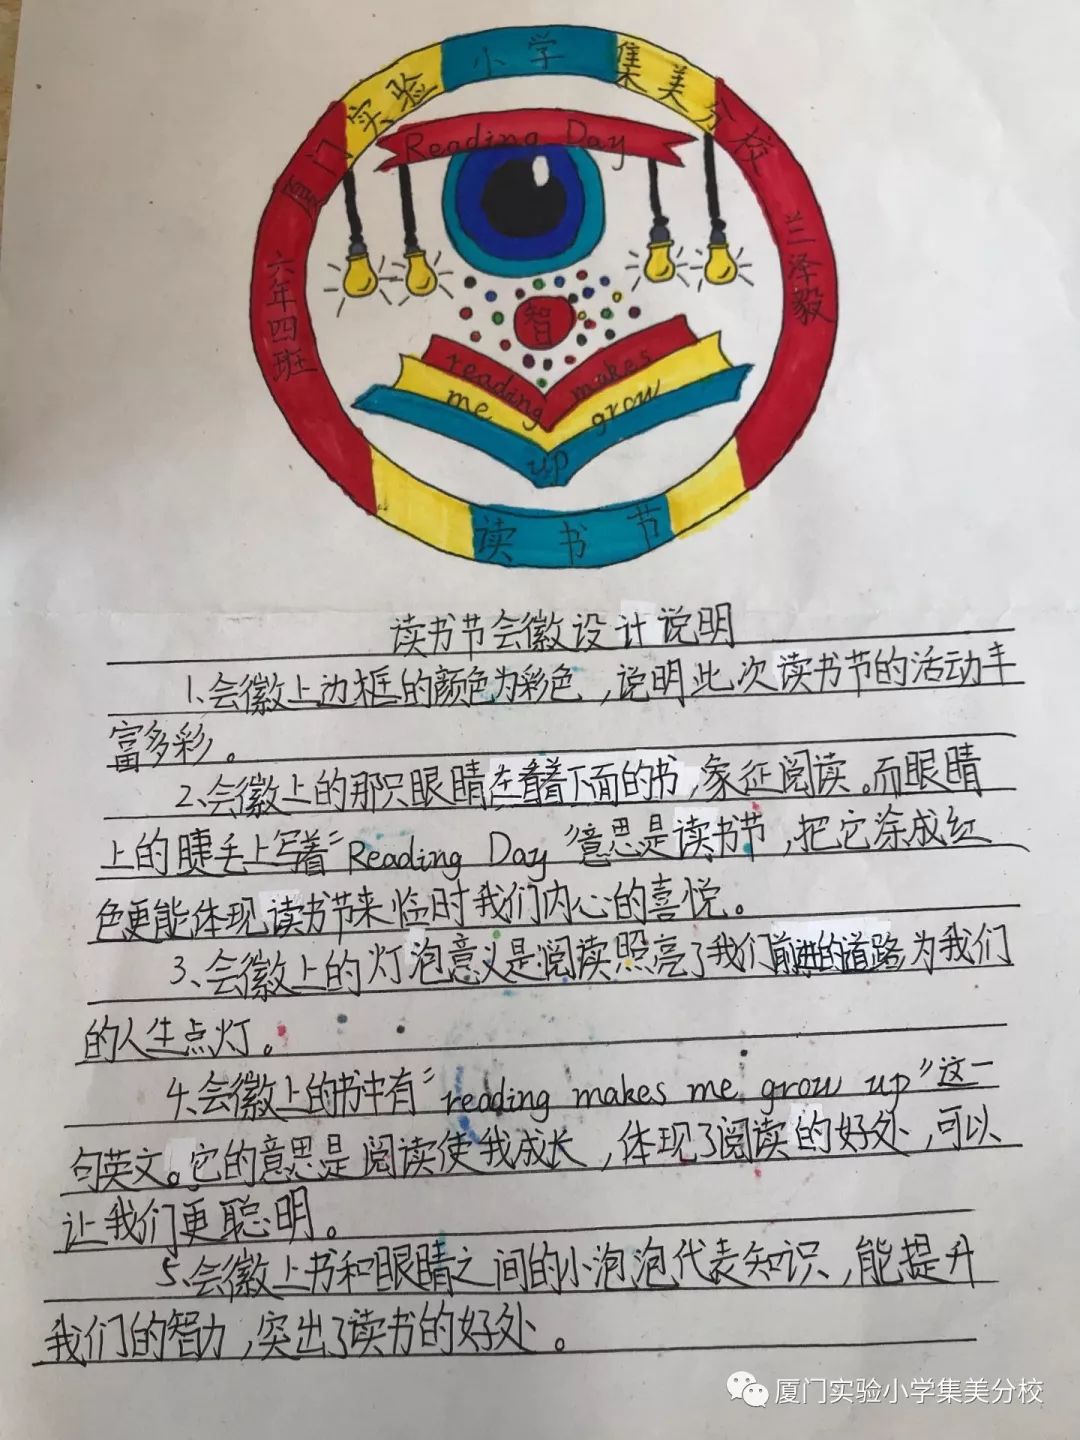 厦门实验小学集美分校
Reading Day
六年四班
兰泽毅
智
reading makes
me grow
up
读书节
读书节会徽设计说明
1、会徽上边框的颜色为彩色,说明此次读书节的活动丰
富多彩。
2、会徽上的那只眼睛在看着下面的书,象征阅读。而眼睛
上的睫毛上写着“Reading Day”意思是读书节,把它涂成红
色更能体现读书节来临时我们内心的喜悦。
3、会徽上的灯泡意义是阅读照亮了我们前进的道路,为我们
的人生点灯。
4、会徽上的书中有“reading makes me grow up”这一
句英文。它的意思是阅读使我成长,体现了阅读的好处,可以
让我们更聪明。
5、会徽上书和眼睛之间的小泡泡代表知识,能提升
我们的智力,突出了读书的好处。
厦门实验小学集美分校